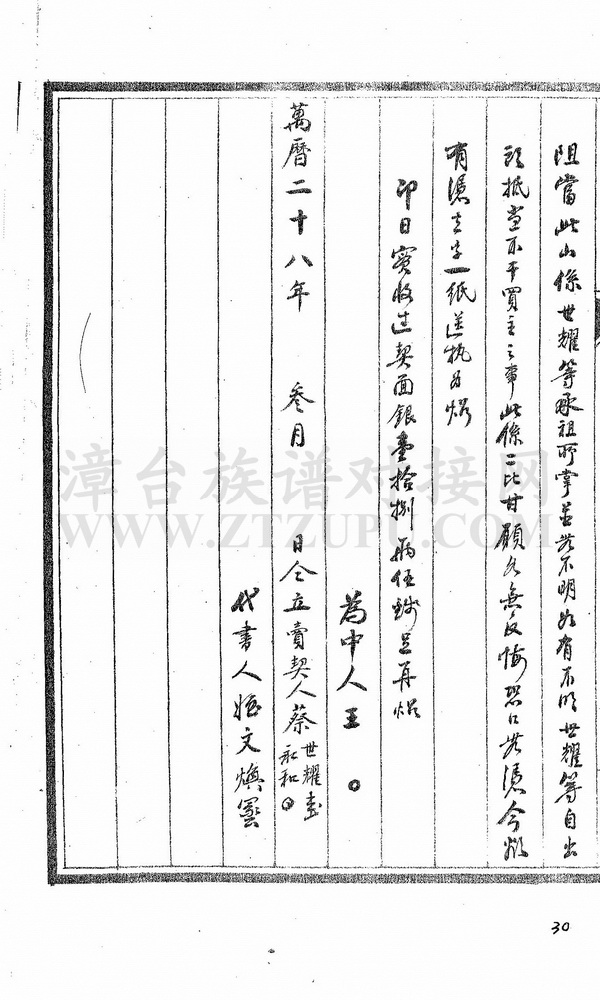 阻當此山係世耀等承祖所掌並無不明如有不明世耀等自出
頭抵當不干買主之事此係二比甘願各無反悔恐口無憑今欲
有憑立字一紙送執為炤
即日實收過契面銀壹拾捌兩伍錢足再炤
為中人王
萬曆二十八年 叁月 日仝立賣契人蔡世耀 永和
代書人 文煥
漳台族谱对接网
WWW.ZTZUPU.COM
30